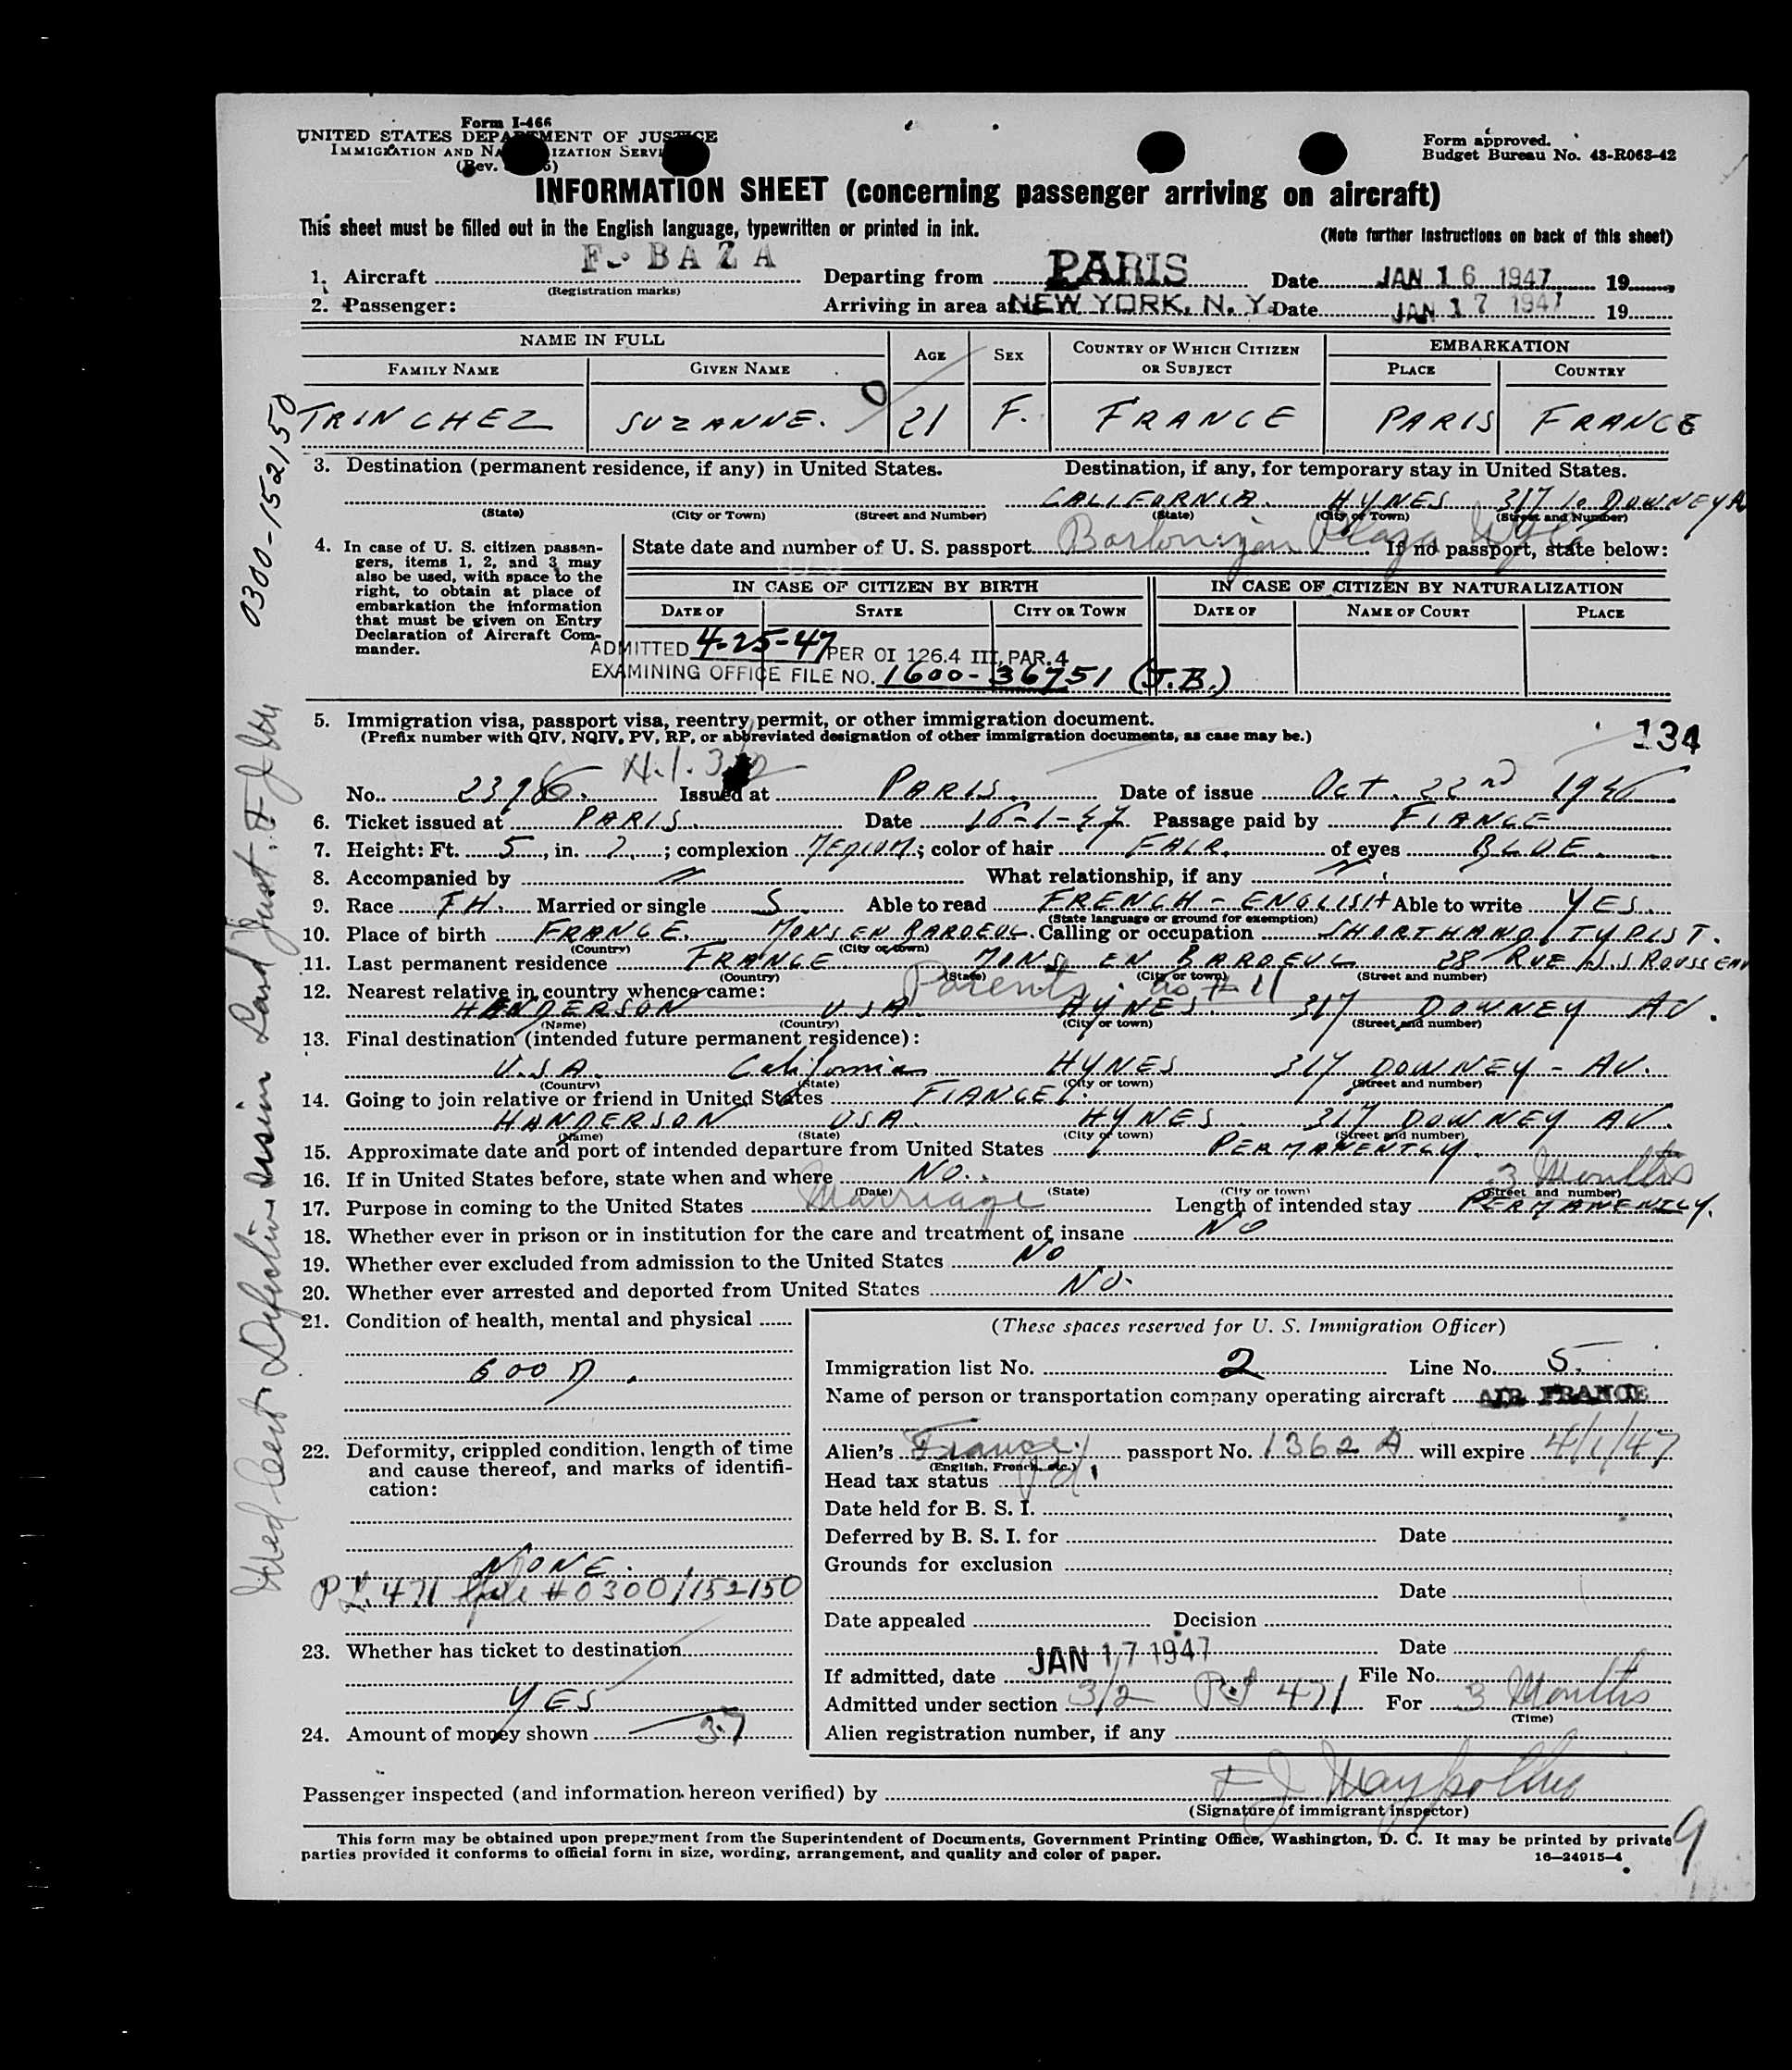 Form I-466
UNITED STATES DEPARTMENT OF JUSTICE
IMMIGRATION AND NATURALIZATION SERVICE
(Rev.
Form approved.
Budget Bureau No. 43-R063-42
INFORMATION SHEET (concerning passenger arriving on aircraft)
This sheet must be filled out in the English language, typewritten or printed in ink.
(Note further instructions on back of this sheet)
1. Aircraft F-BAZA Departing from PARIS Date JAN 16 1947 19
(Registration marks)
2. Passenger: Arriving in area at NEW YORK, N. Y. Date JAN 17 1947 19
NAME IN FULL AGE SEX COUNTRY OF WHICH CITIZEN OR SUBJECT EMBARKATION
FAMILY NAME GIVEN NAME PLACE COUNTRY
TRINCHEZ SUZANNE. 21 F. FRANCE PARIS FRANCE
3. Destination (permanent residence, if any) in United States. Destination, if any, for temporary stay in United States.
CALIFORNIA. HYNES 317 DOWNEY
(State) (City or Town) (Street and Number) (State) (City or Town) (Street and Number)
4. In case of U. S. citizen passengers, items 1, 2, and 3 may also be used, with space to the right, to obtain at place of embarkation the information that must be given on Entry Declaration of Aircraft Commander.
State date and number of U. S. passport Plaza If no passport, state below:
IN CASE OF CITIZEN BY BIRTH IN CASE OF CITIZEN BY NATURALIZATION
DATE OF STATE CITY OR TOWN DATE OF NAME OF COURT PLACE
ADMITTED 4-25-47 PER OI 126.4 III, PAR.4
EXAMINING OFFICE FILE NO. 1600-36751 (J.B.)
5. Immigration visa, passport visa, reentry permit, or other immigration document.
(Prefix number with QIV, NQIV, PV, RP, or abbreviated designation of other immigration documents, as case may be.)
134
No. 2396. Issued at PARIS. Date of issue Oct. 22nd 1946
6. Ticket issued at PARIS. Date 16-1-47 Passage paid by FIANCE
7. Height: Ft. 5, in. 7; complexion MEDIUM; color of hair FAIR of eyes BLUE
8. Accompanied by What relationship, if any
9. Race FH. Married or single S Able to read FRENCH - ENGLISH Able to write YES.
(State language or ground for exemption)
10. Place of birth FRANCE. MONS EN BAROEUL. Calling or occupation SHORTHAND/TYPIST.
(Country) (City or town)
11. Last permanent residence FRANCE MONS EN BAROEUL 28 RUE J.J ROUSSEAU
(Country) (State) (City or town) (Street and number)
12. Nearest relative in country whence came: Parents. as #11
HANDERSON USA. HYNES. 317 DOWNEY AV.
(Name) (Country) (City or town) (Street and number)
13. Final destination (intended future permanent residence):
U.S.A. California HYNES 317 DOWNEY - AV.
(Country) (State) (City or town) (Street and number)
14. Going to join relative or friend in United States FIANCE.
HANDERSON USA. HYNES. 317 DOWNEY AV.
(Name) (State) (City or town) (Street and number)
15. Approximate date and port of intended departure from United States PERMANENTLY.
16. If in United States before, state when and where NO. 3 Months
(Date) (State) (City or town) (Street and number)
17. Purpose in coming to the United States Marriage Length of intended stay PERMANENTLY.
18. Whether ever in prison or in institution for the care and treatment of insane NO
19. Whether ever excluded from admission to the United States NO
20. Whether ever arrested and deported from United States NO.
21. Condition of health, mental and physical
GOOD.
22. Deformity, crippled condition, length of time and cause thereof, and marks of identification:
NONE.
PL. 471 file #0300/152150
23. Whether has ticket to destination
YES
24. Amount of money shown 37
(These spaces reserved for U. S. Immigration Officer)
Immigration list No. 2 Line No. 5.
Name of person or transportation company operating aircraft AIR FRANCE
Alien's France passport No. 1362 A will expire 4/1/47
(English, French, etc.)
Head tax status Pd.
Date held for B. S. I.
Deferred by B. S. I. for Date
Grounds for exclusion
Date
Date appealed Decision
Date
If admitted, date JAN 17 1947 File No.
Admitted under section 3/2 PL 471 For 3 Months
(Time)
Alien registration number, if any
Passenger inspected (and information hereon verified) by
(Signature of immigrant inspector)
This form may be obtained upon prepayment from the Superintendent of Documents, Government Printing Office, Washington, D. C. It may be printed by private
parties provided it conforms to official form in size, wording, arrangement, and quality and color of paper.
16—24915-4
9
0300-152150